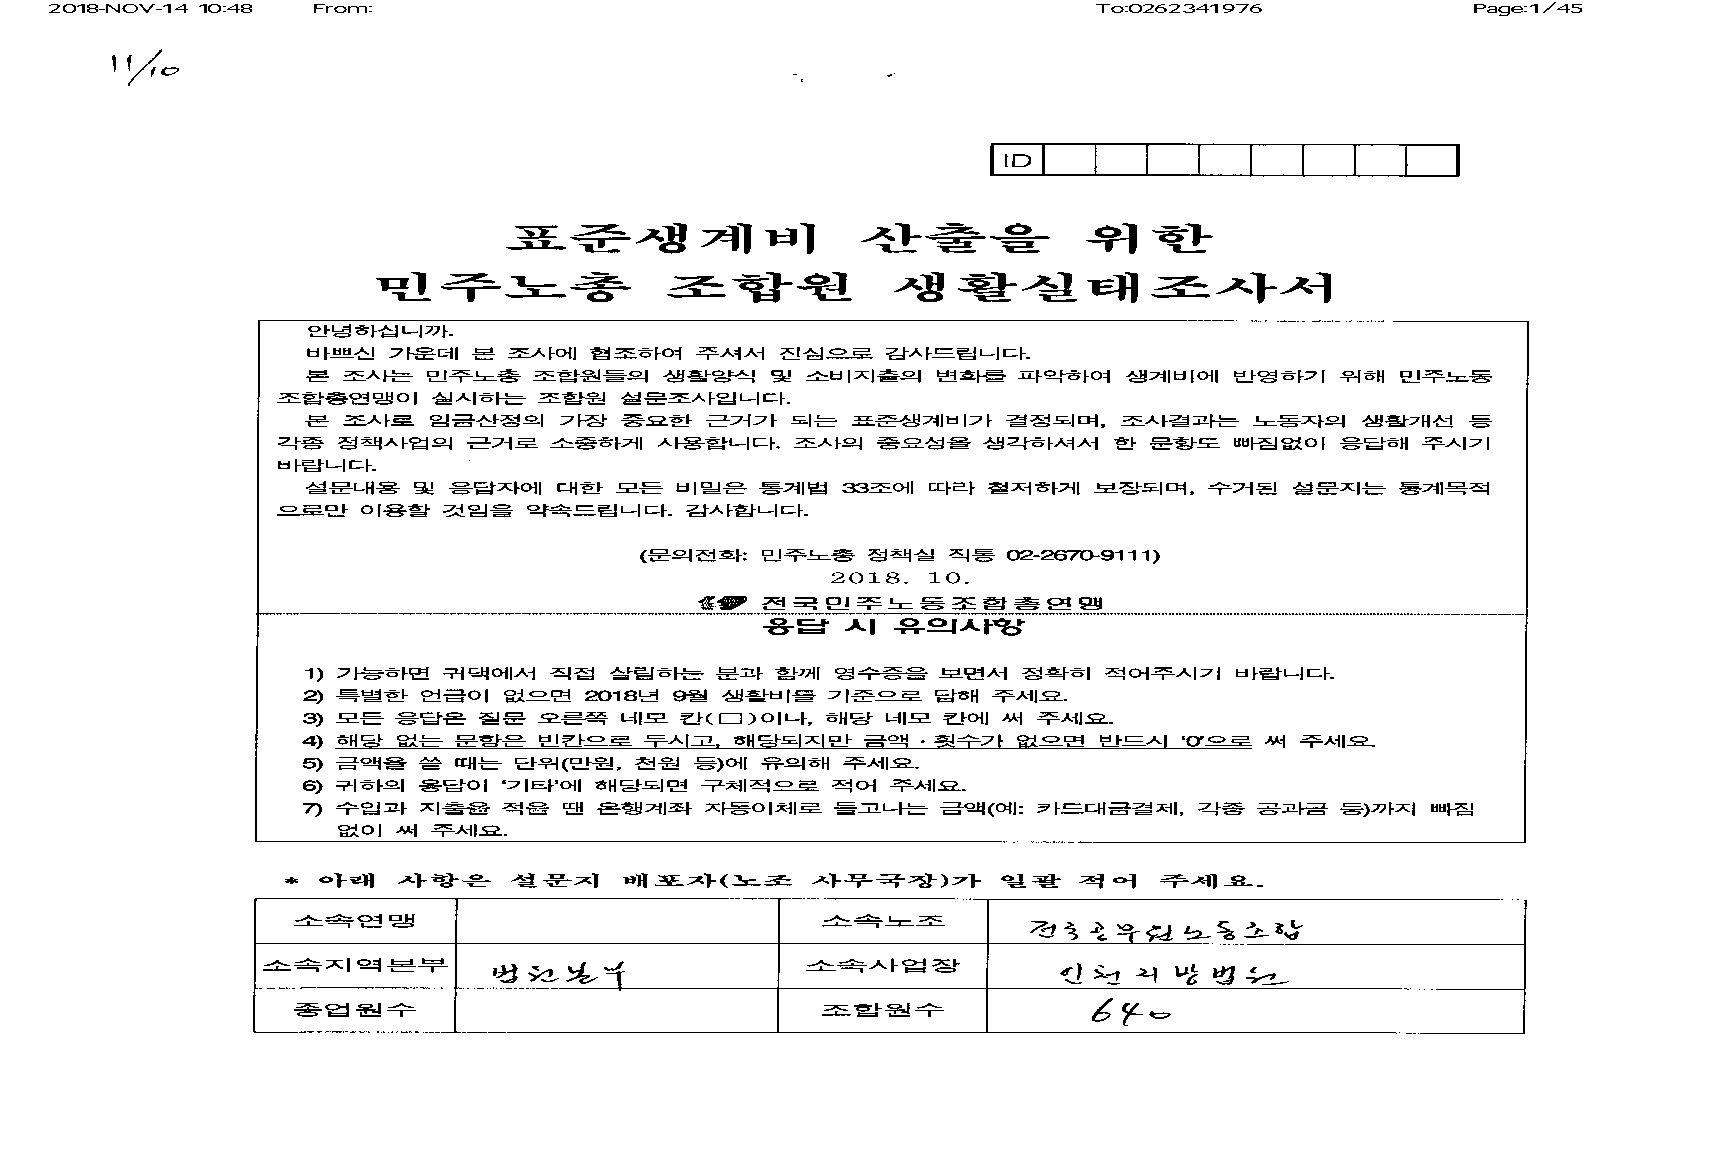 2018-NOV-14 10:48 From: To:0262341976 Page:1/45
11/10
ID
표준생계비 산출을 위한
민주노총 조합원 생활실태조사서
안녕하십니까.
바쁘신 가운데 본 조사에 협조하여 주셔서 진심으로 감사드립니다.
본 조사는 민주노총 조합원들의 생활양식 및 소비지출의 변화를 파악하여 생계비에 반영하기 위해 민주노동
조합총연맹이 실시하는 조합원 설문조사입니다.
본 조사로 임금산정의 가장 중요한 근거가 되는 표준생계비가 결정되며, 조사결과는 노동자의 생활개선 등
각종 정책사업의 근거로 소중하게 사용합니다. 조사의 중요성을 생각하셔서 한 문항도 빠짐없이 응답해 주시기
바랍니다.
설문내용 및 응답자에 대한 모든 비밀은 통계법 33조에 따라 철저하게 보장되며, 수거된 설문지는 통계목적
으로만 이용할 것임을 약속드립니다. 감사합니다.
(문의전화: 민주노총 정책실 직통 02-2670-9111)
2018. 10.
전국민주노동조합총연맹
응답 시 유의사항
1) 가능하면 귀댁에서 직접 살림하는 분과 함께 영수증을 보면서 정확히 적어주시기 바랍니다.
2) 특별한 언급이 없으면 2018년 9월 생활비를 기준으로 답해 주세요.
3) 모든 응답은 질문 오른쪽 네모 칸(□)이나, 해당 네모 칸에 써 주세요.
4) 해당 없는 문항은 빈칸으로 두시고, 해당되지만 금액·횟수가 없으면 반드시 '0'으로 써 주세요.
5) 금액을 쓸 때는 단위(만원, 천원 등)에 유의해 주세요.
6) 귀하의 응답이 '기타'에 해당되면 구체적으로 적어 주세요.
7) 수입과 지출을 적을 땐 은행계좌 자동이체로 들고나는 금액(예: 카드대금결제, 각종 공과금 등)까지 빠짐
없이 써 주세요.
* 아래 사항은 설문지 배포자(노조 사무국장)가 일괄 적어 주세요.
소속연맹 소속노조 전국공무원노동조합
소속지역본부 법원본부 소속사업장 인천지방법원
종업원수 조합원수 640